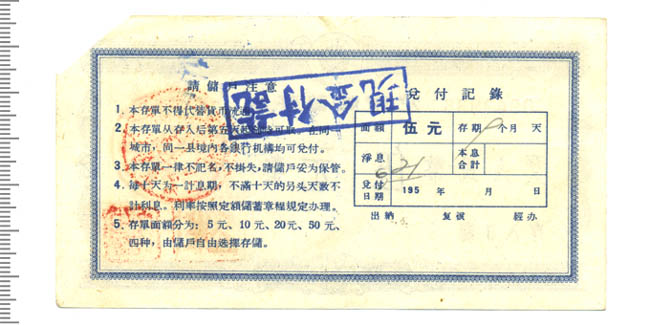 請儲戶注意
1. 本存單不得代替貨币流通。
2. 本存單从存入后第五天起即可取，在同一
城市，同一县境内各銀行机構均可兌付。
3. 本存單一律不記名，不掛失，請儲戶妥为保管。
4. 每十天为一計息期，不滿十天的另头天數不
計利息。利率按照定額儲蓄章程規定办理。
5. 存單面額分为：5元、10元、20元、50元、
四种，由儲戶自由选擇存儲。
現金付訖
兌付記錄
面額 伍元 存期 9 个月 天
淨息 621 本息合計
兌付日期 195 年 月 日
出納 复核 經办